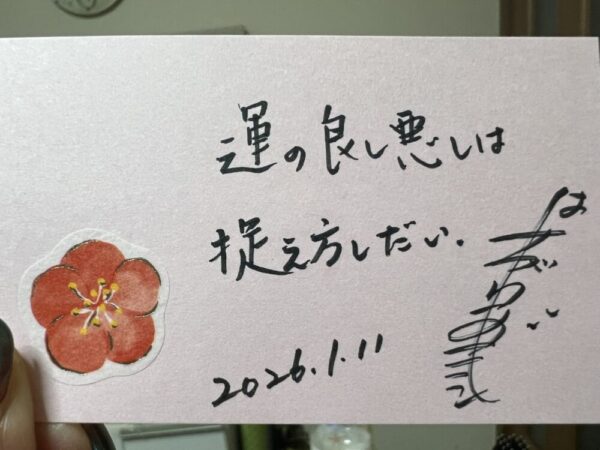 運の良し悪しは
捉え方しだい.
2026.1.11